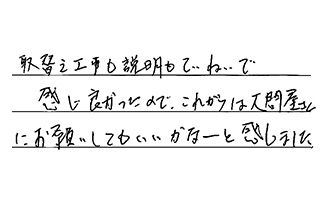 取替え工事も説明もていねいで
感じ良かったので、これからは大問屋さん
にお願いしてもいいかなーと感じました